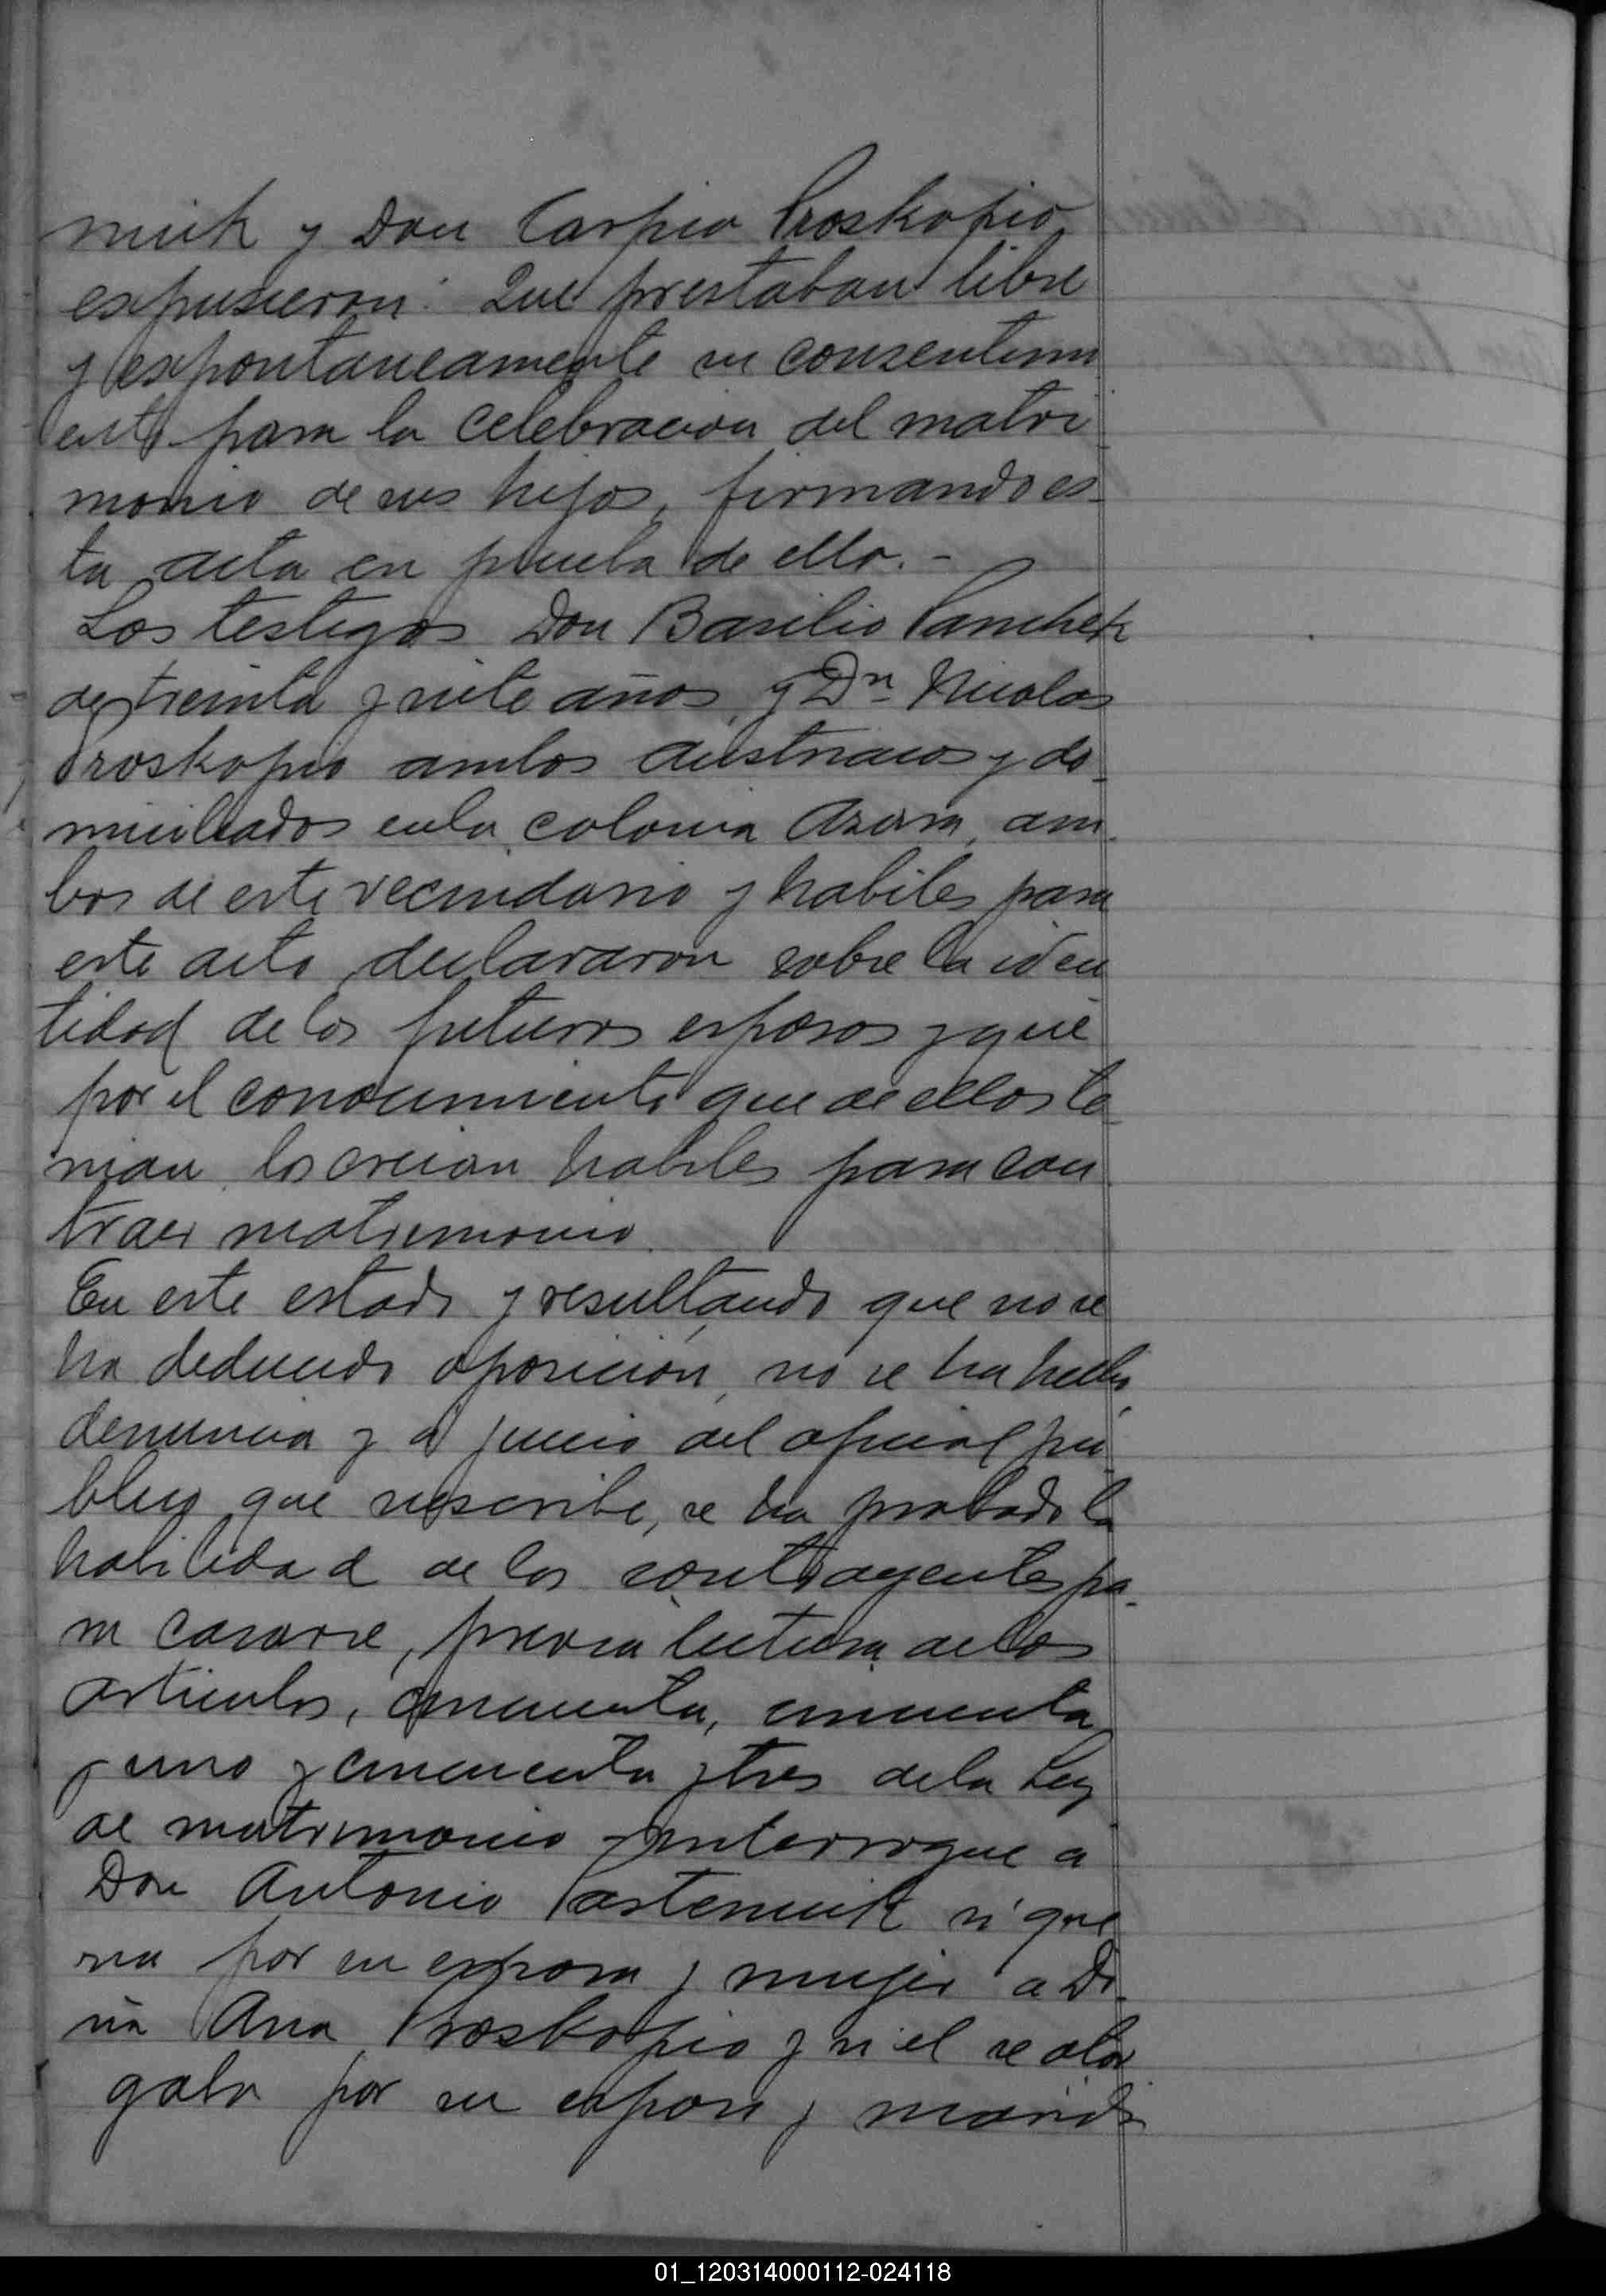 niuk y Don Carpio Proskopio
expusieron: Que prestaban libre
y expontaneamente su consentimi
ento para la celebracion del matri
monio de sus hijos, firmando es-
ta acta en prueba de ello.-
Los testigos Don Basilio
de treinta y siete años, y Dn Nicolas
Proskopio ambos austriacos y do-
miciliados en la colonia Azara, am-
bos de este vecindario y habiles para
este acto, declararon sobre la iden
tidad de los futuros esposos y que
por el conocimiento que de ellos te-
nian, los creian habiles para con
traer matrimonio.
En este estado y resultando que no se
ha deducido oposición, no se ha hecho
denuncia y a juicio del oficial pú-
blico que suscribe, se ha probado la
habilidad de los contrayentes pa-
ra casarse, previa lectura de los
articulos, cincuenta, cincuenta
y uno y cincuenta y tres de la Ley
de matrimonio interrogue a
Don Antonio Pasterniuk si que
ria por su esposa y mujer a Do-
ña Ana Proskopio y si el se otor
gaba por su esposo y marido
01_120314000112-024118